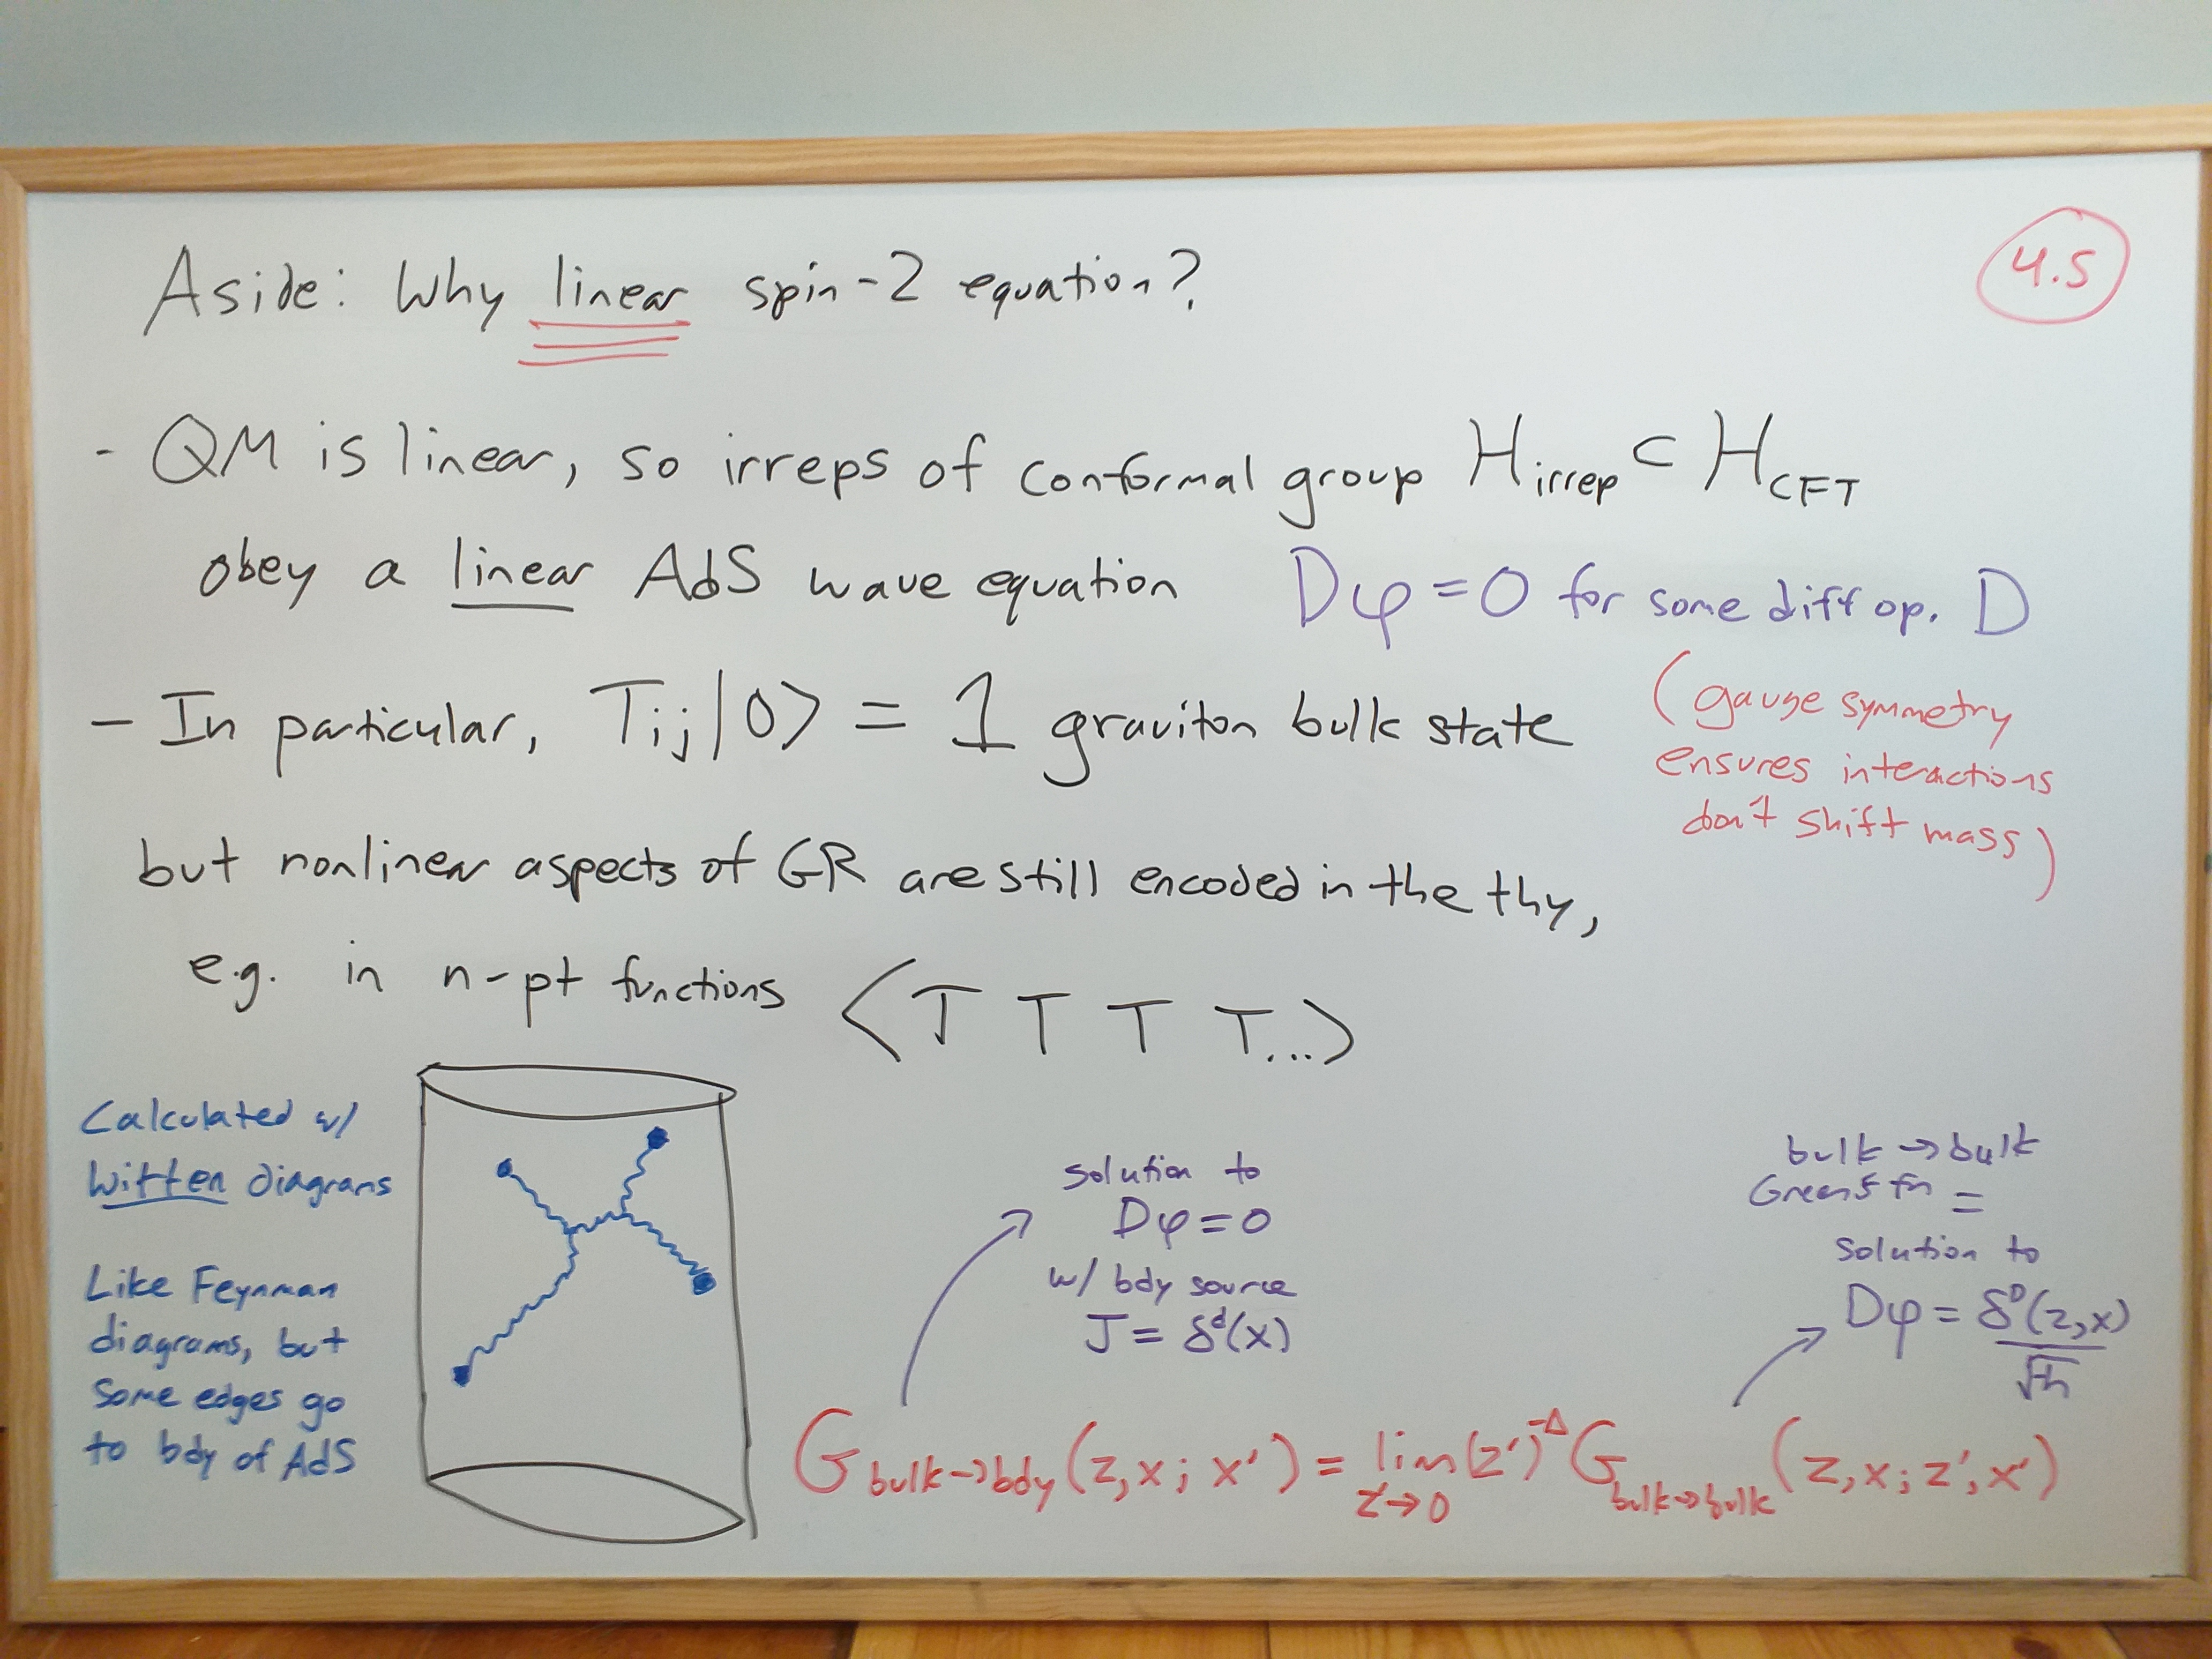 Aside: Why linear spin-2 equation?
4.5
- QM is linear, so irreps of conformal group H_irrep ⊂ H_CFT
obey a linear AdS wave equation Dφ=0 for some diff op. D
- In particular, T_ij|0> = 1 graviton bulk state
(gauge symmetry
ensures interactions
don't shift mass)
but nonlinear aspects of GR are still encoded in the thy,
e.g. in n-pt functions <T T T T...>
Calculated w/
Witten diagrams
Like Feynman
diagrams, but
some edges go
to bdy of AdS
solution to
Dφ=0
w/ bdy source
J = δ^d(x)
bulk→bulk
Green's fn =
solution to
Dφ = δ^D(z,x)/√h
G_bulk→bdy(z,x; x') = lim_z'→0 (z')^-Δ G_bulk→bulk(z,x; z',x')